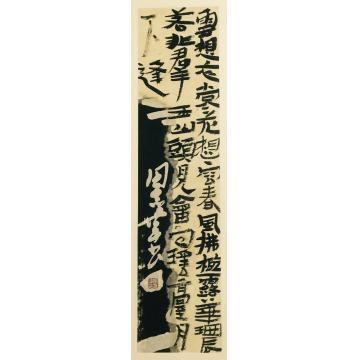 雲想衣裳花想容春風拂檻露華濃
若非羣玉山頭見會向瑤臺月
下逢